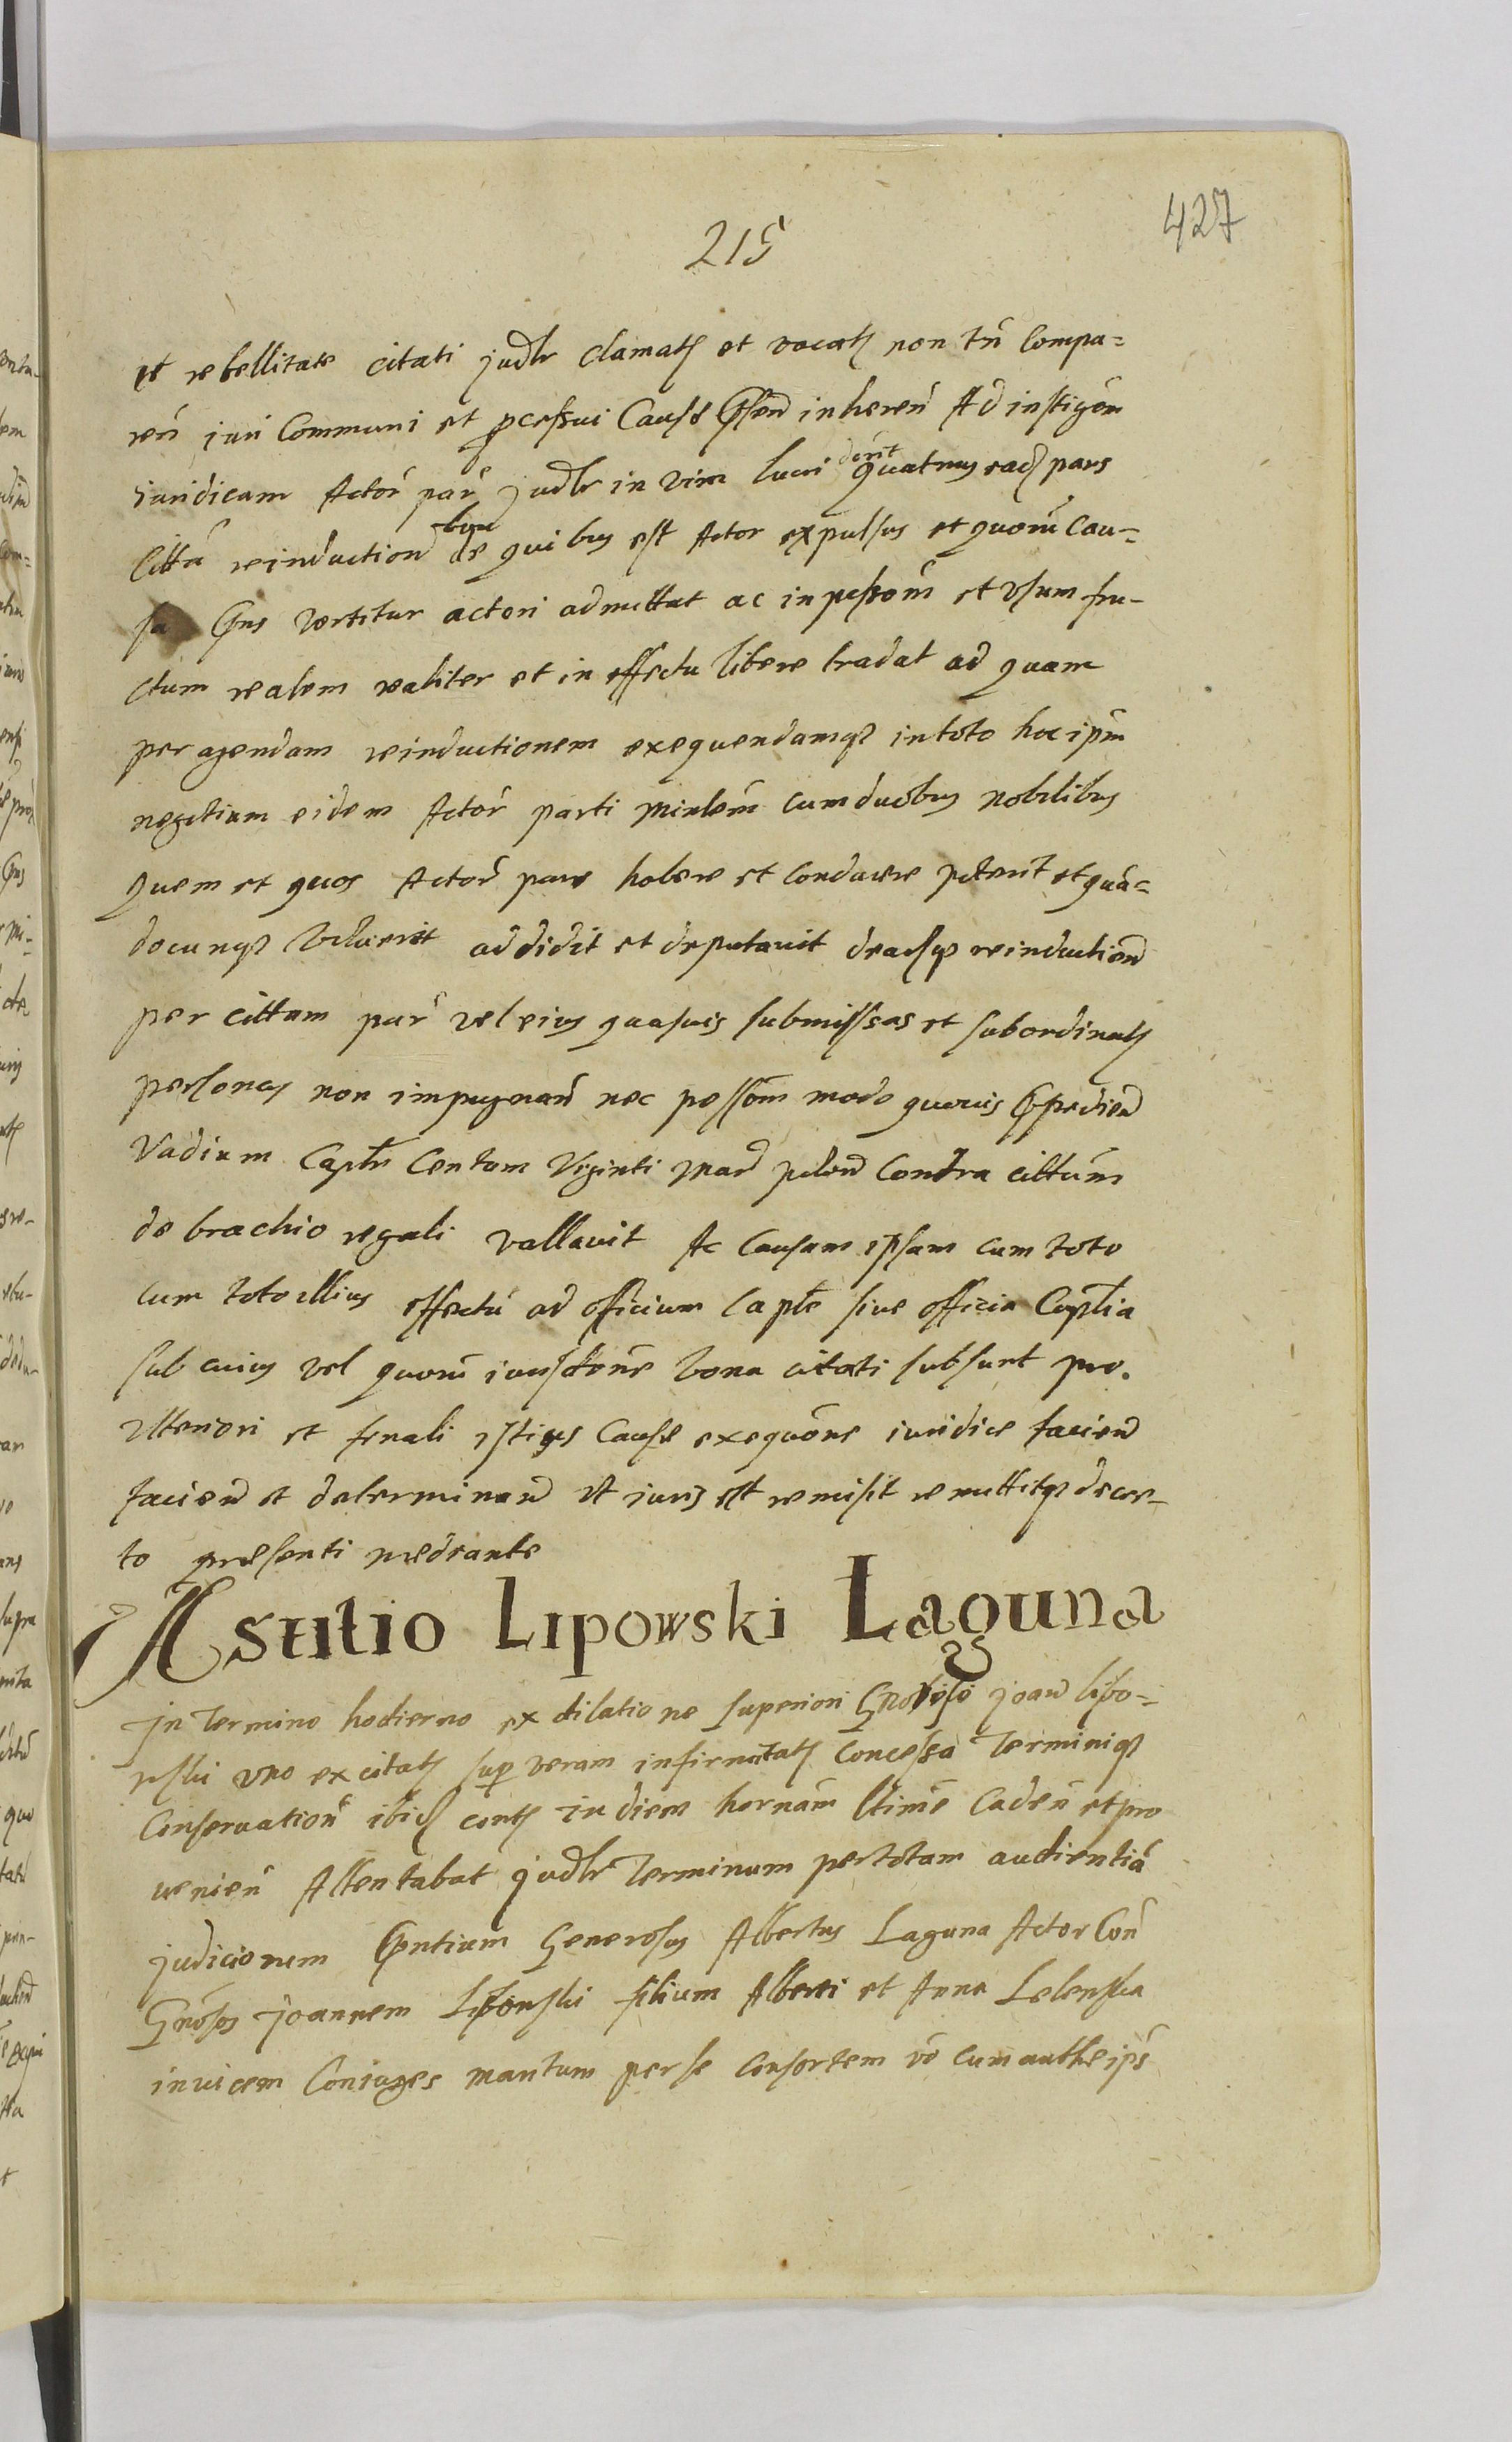 427
215
et rebellitate citati judlr clamatę et vocatę non tñ Compa=
reñ iuri Communi et pcessui Causę Gsend inhereñ Ad instigõn
iuridicam Actoř pař judlr in vim lucri derit quatnus eadę pars
Citta reinduction bonr de quibus est Actor expulsus et quorũ Cau=
sa Gns vertitur actori admittat ac in possoñ et usum fru-
ctum realem realiter et in effectu libere tradat ad quam
peragendam reinductionem exequendamqȝ in toto hoc ipm
negotium eidem Actoř parti Minlem̃ cum duobus nobilibus
quem et quos Actoř pars habere et Conducere poterit et quã=
documqȝ voluerit addidit et deputauit deadqȝ reinduction
per cittam pař vel eius quasuis submissas et subordinatę
personas non impugnañ nec possõm modo quouis Gpediend
Vadium Caplr Centum Viginti Mard polond Contra cittum
de brachio regali vallauit Ac Causam ipsam cum toto
cum toto illius effectu ad officium Caple siue officia Caplia
sub cuius vel quorũ iurisdõne bona citati subsunt pro.
ulteriori et finali istius Causę exequõne iuridice faciend
faciend et determinand ut iuris est remisit remittitqȝ decre-
to presenti mediante
Astitio Lipowski Laguna
In termino hodierno ex dilatione superiori Gnoboso joand lipo=
wski uno ex citatę sup veram infirmitatę Concessa Terminiqȝ
Conseruationẽ ibidę contę in diem hornam ltime Cadeñ et pro
uenieñ Attentabat judlr Terminum per totam audientiã
judiciorum Gntium Generosus Albertus Laguna Actor Coñ
Gnosos Joannem Liponski filium Alberti et Anna Lelenska
inuicem Coniuges maritum per se Consortem vo cum authe ips